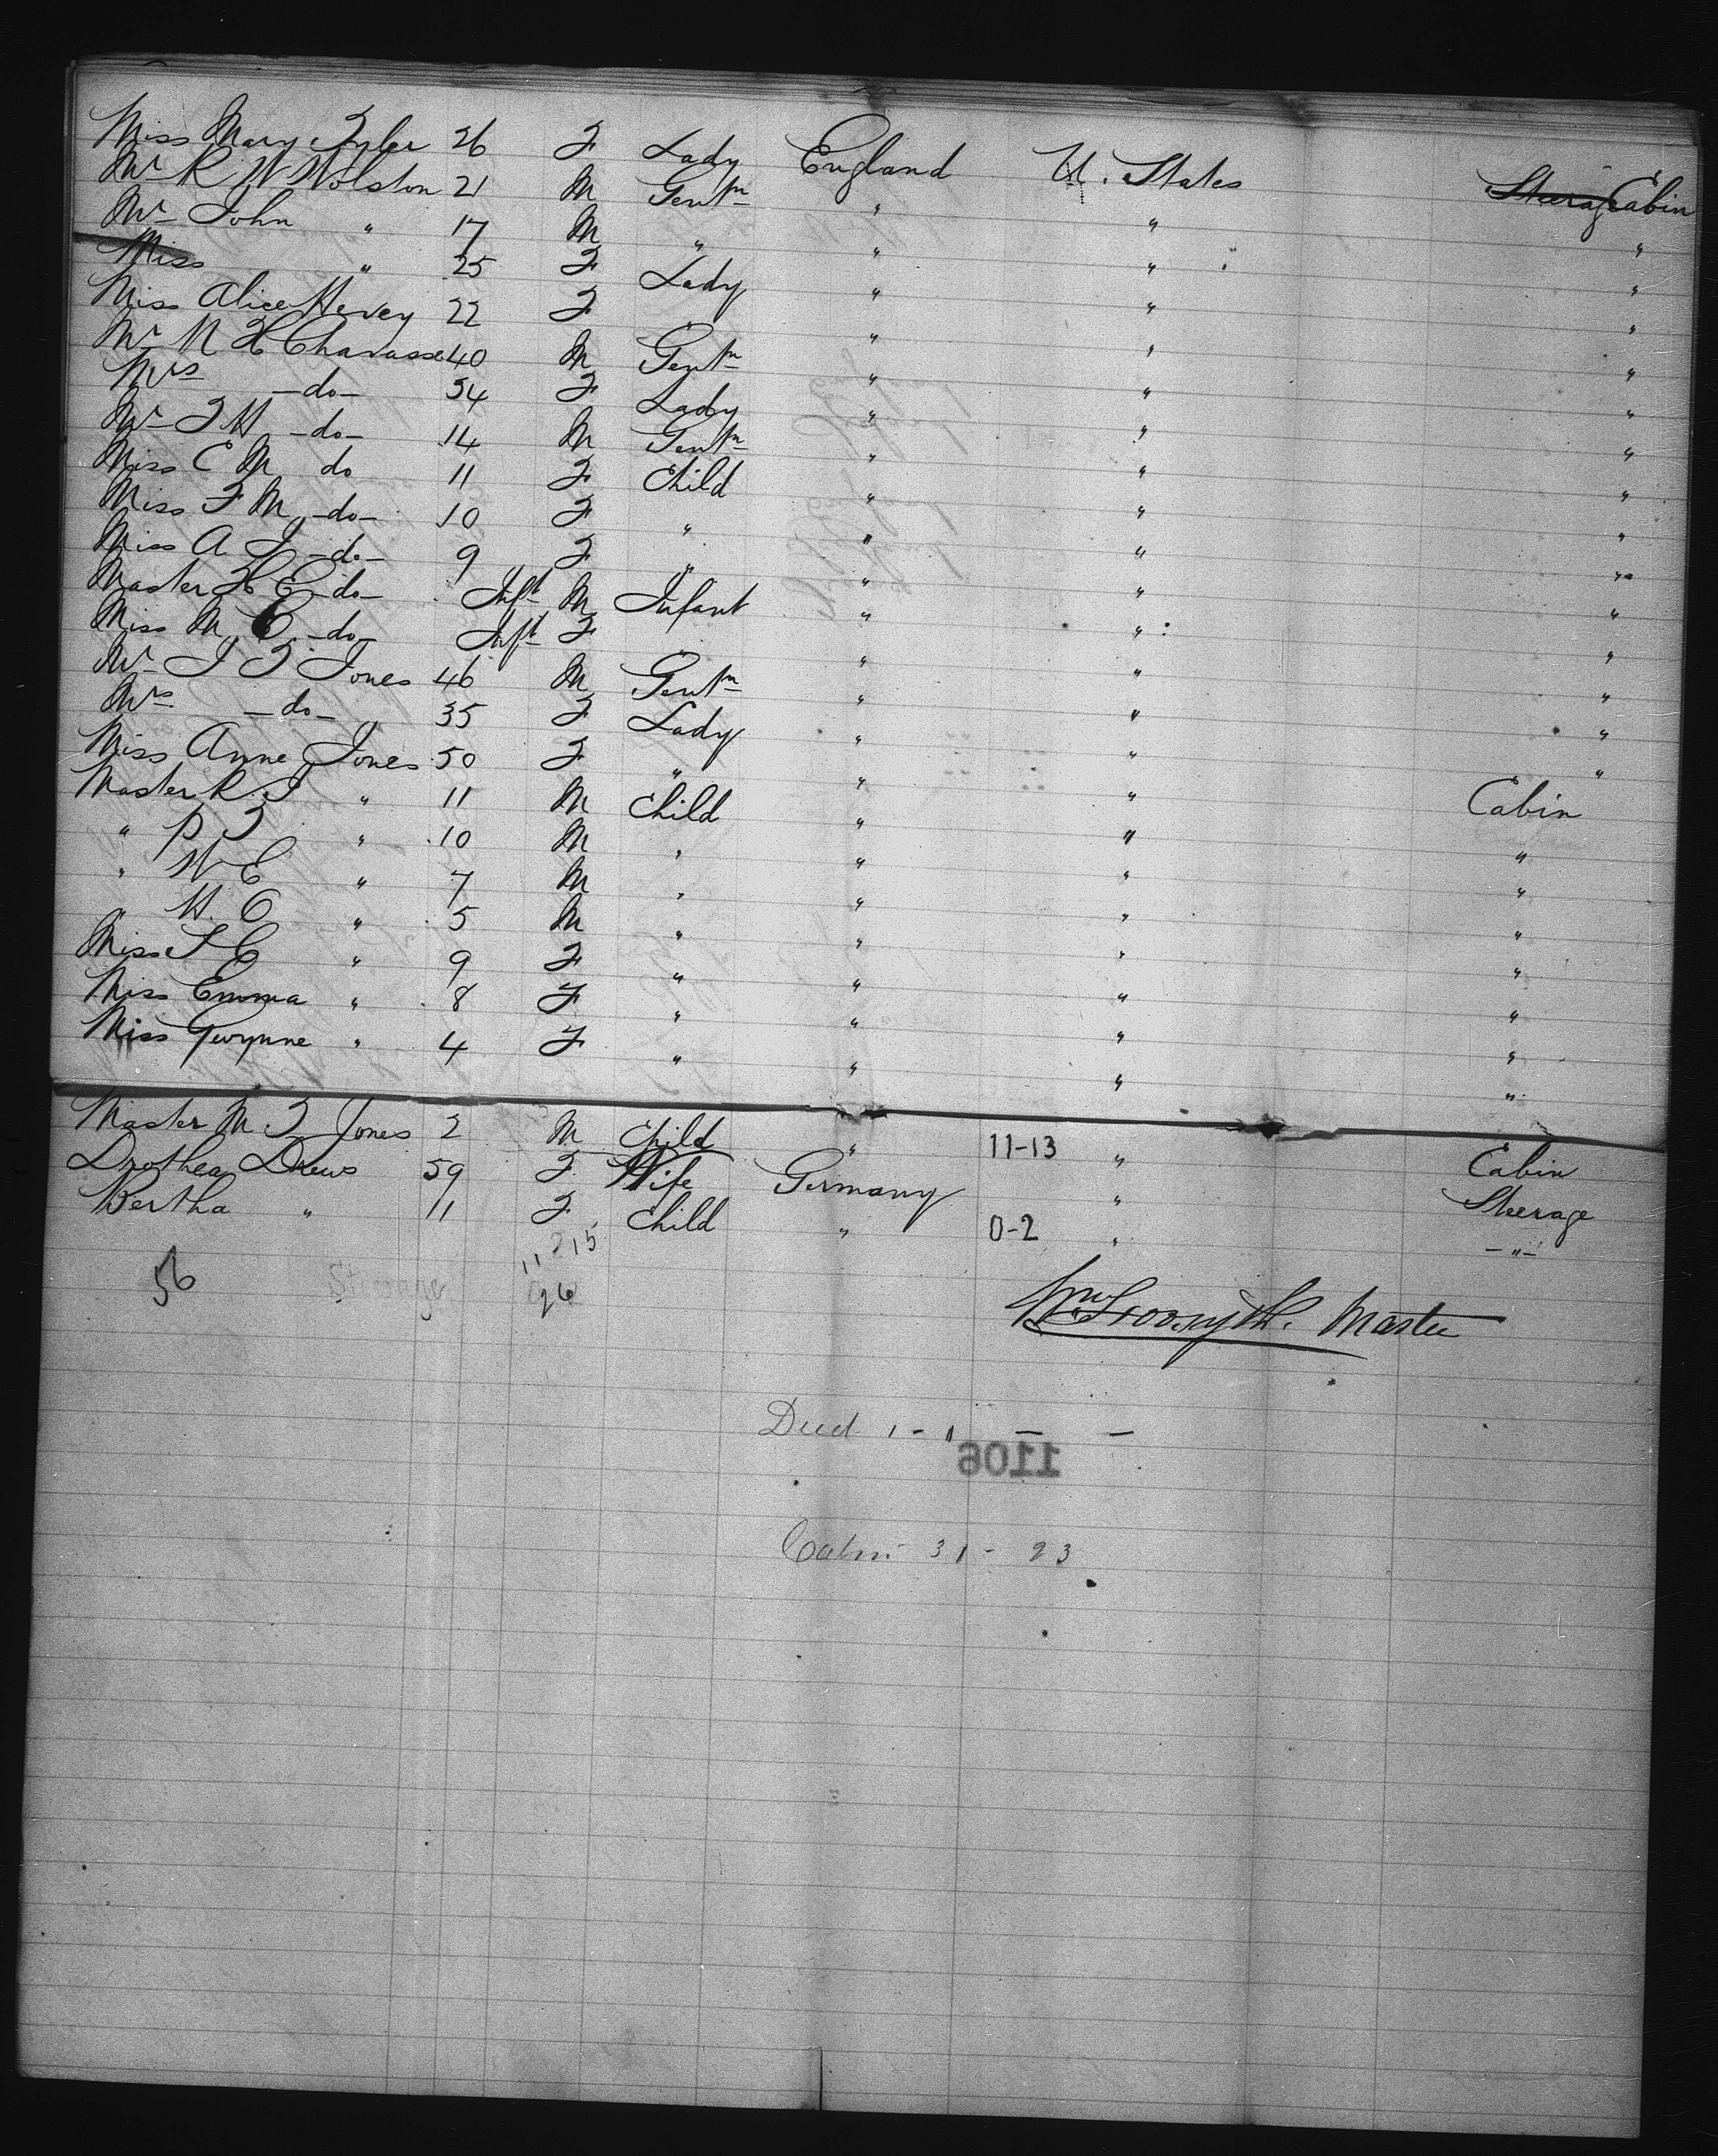 Miss Mary Tyler 26 F Lady England U. States Steerage Cabin
Mr R W Wolston 21 M Gentn " " "
Mr John " 17 M " " " "
Miss " 25 F Lady " " "
Miss Alice Hervey 22 F " " " "
Mr N H Chavasse 40 M Gentn " " "
Mrs -do- 34 F Lady " " "
Mr F H -do- 14 M Gentn " " "
Miss C M do 11 F Child " " "
Miss F M -do- 10 F " " " "
Miss A I -do- 9 F " " " "
Master H E -do- Inft M Infant " " "
Miss M C -do- Inft F " " " "
Mr J T Jones 46 M Gentn " " "
Mrs -do- 35 F Lady " " "
Miss Anne Jones 50 F " " " "
Master R I " 11 M Child " " Cabin
" P T " 10 M " " " "
" W E " 7 M " " " "
" H. C " 5 M " " " "
Miss S C " 9 F " " " "
Miss Emma " 8 F " " " "
Miss Gwynne " 4 F " " " "
Master M T Jones 2 M Child " 11-13 " Cabin
Drothea Drews 59 F Wife Germany " Steerage
Bertha " 11 F Child " 0-2 " -"-
11 15
56 Steerage 26
Wm Forsyth. Master
Died 1 - 11 - -
1106
Cabin 31 - 23